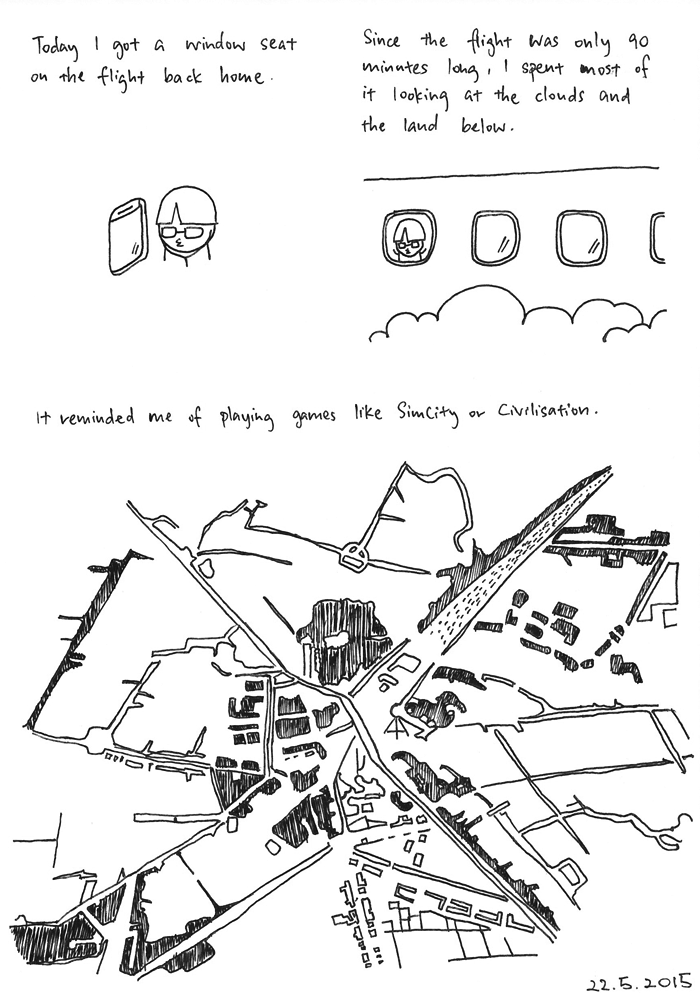 Today I got a window seat
on the flight back home.
Since the flight was only 90
minutes long, I spent most of
it looking at the clouds and
the land below.
It reminded me of playing games like SimCity or Civilisation.
22.5.2015